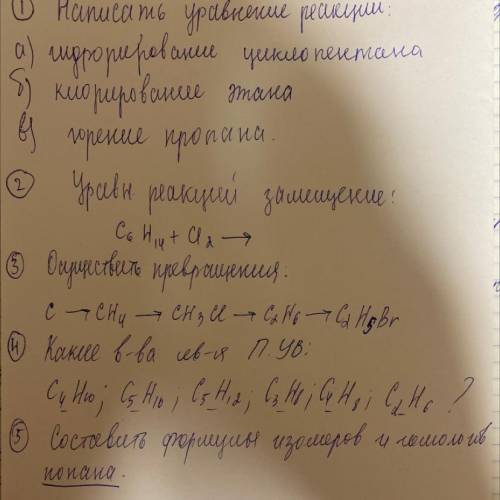 ① Написать уравнение реакции:
а) гидрирование циклопентана
б) хлорирование этана
в) горение пропана.
② Уравн. реакцией замещение:
C₆H₁₄ + Cl₂ →
③ Осуществить превращения:
C → CH₄ → CH₃Cl → C₂H₆ → C₂H₅Br
④ Какие в-ва яв-я П.УВ:
C₄H₁₀; C₅H₁₀; C₅H₁₂; C₃H₈; C₄H₈; C₂H₆ ?
⑤ Составить формулы изомеров и гомологов
нонана.